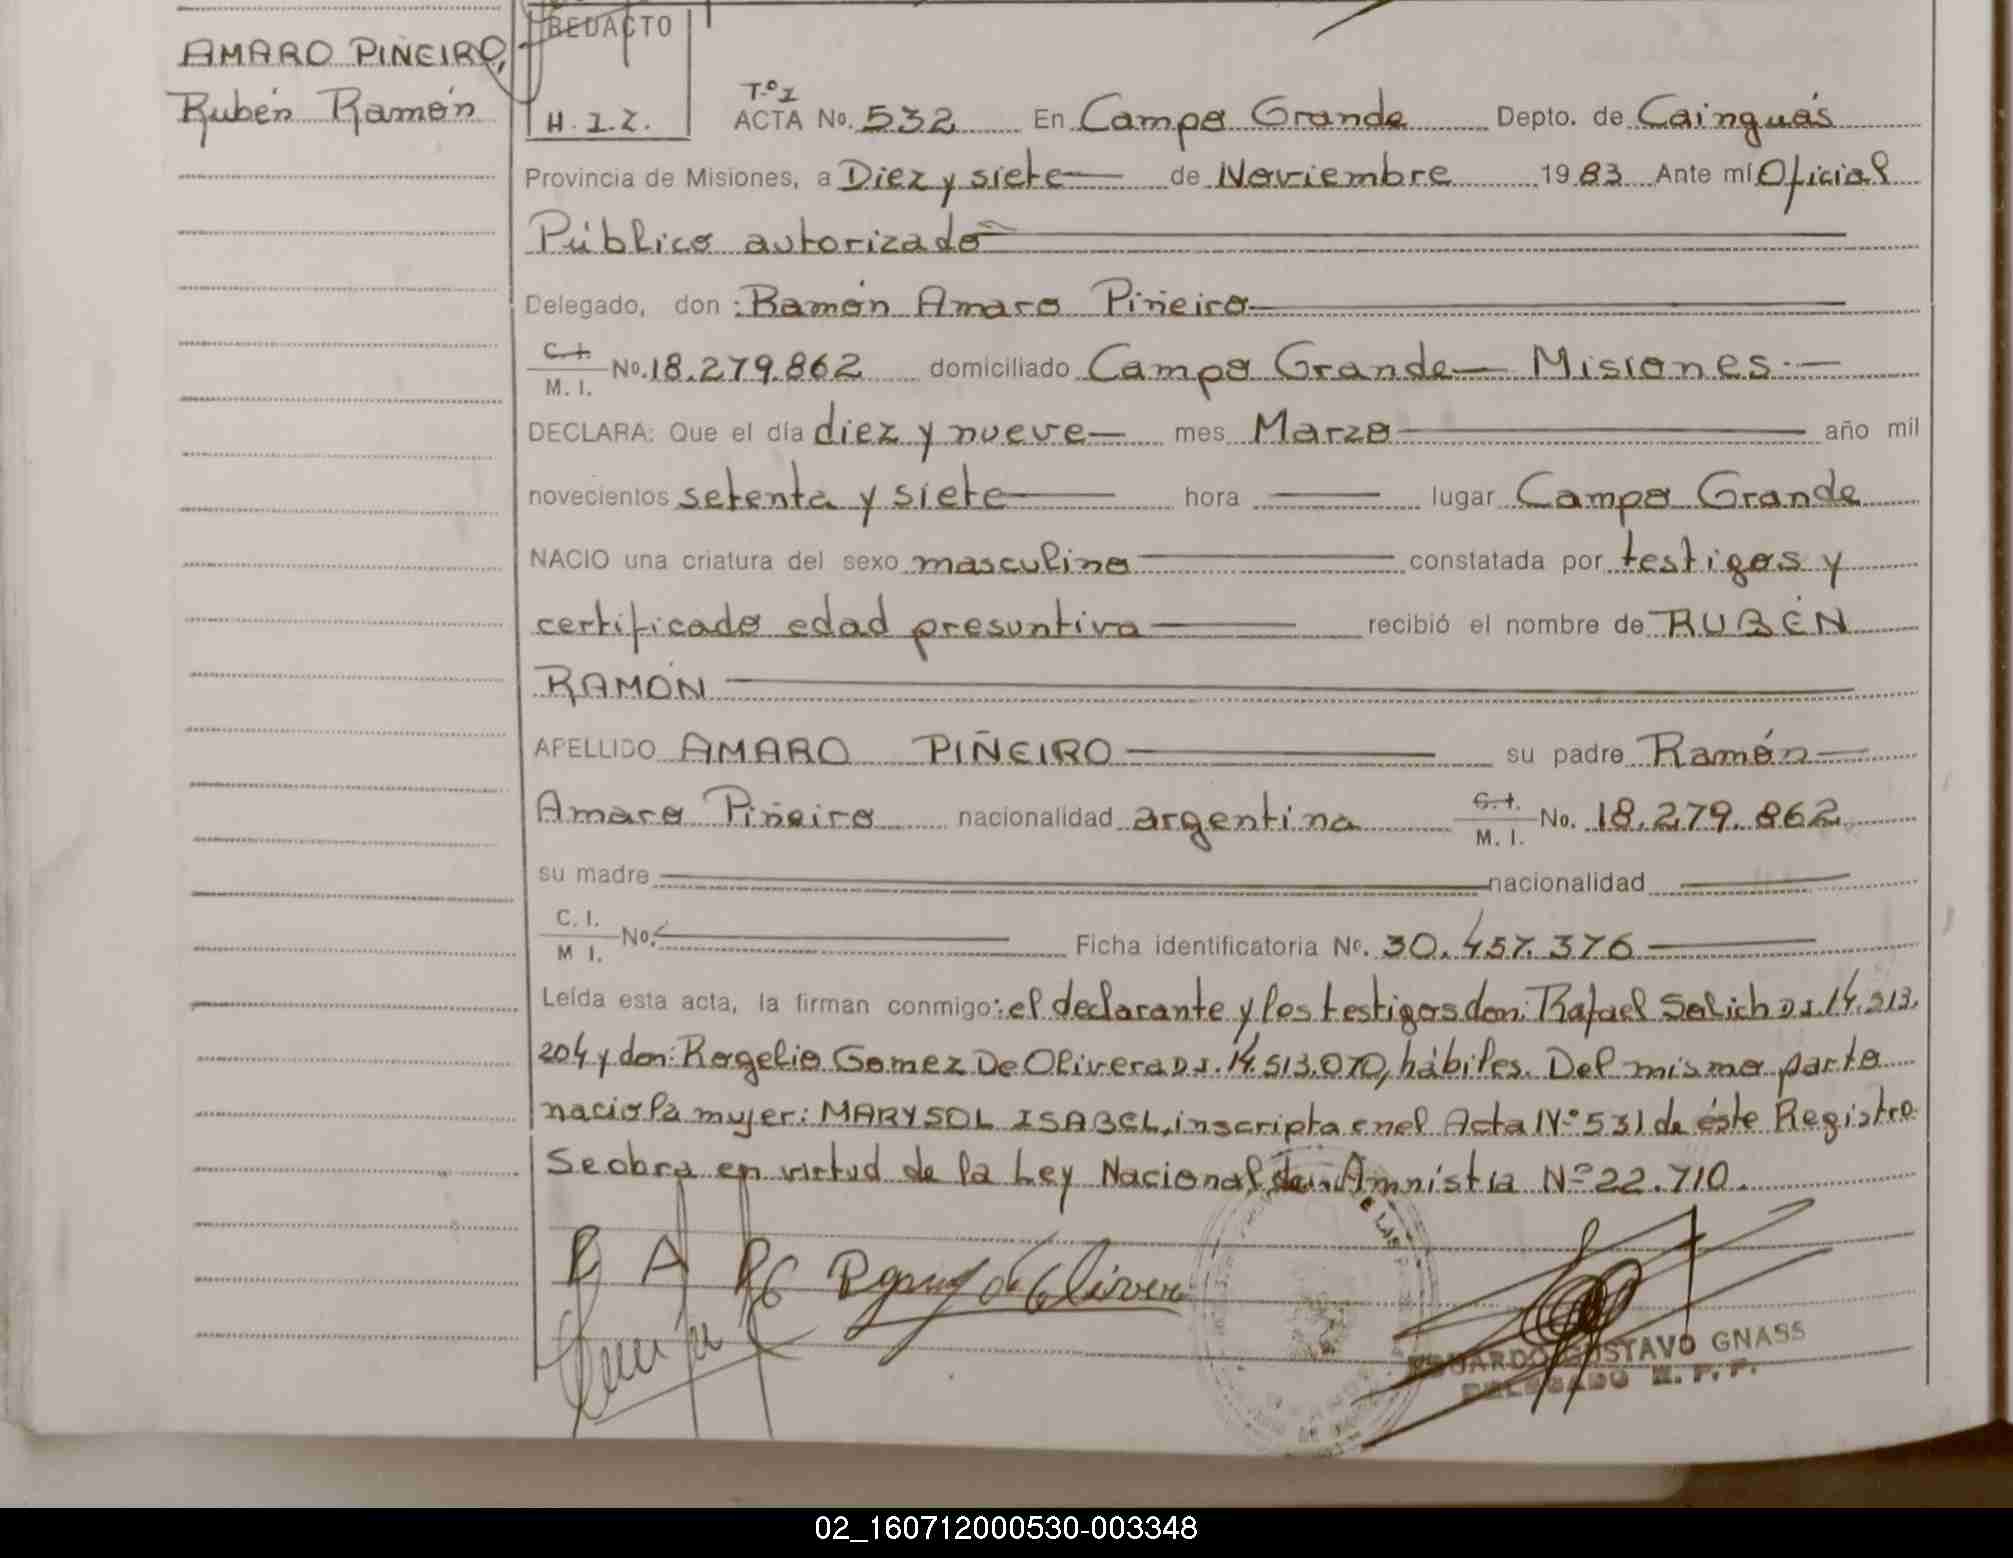 AMARO PIÑEIRO,
Rubén Ramón
REDACTO
H. I. Z.
T.º I
ACTA No. 532 En Campo Grande Depto. de Cainguás
Provincia de Misiones, a Diez y siete de Noviembre 1983 Ante mí Oficial
Público autorizado
Delegado, don: Ramón Amaro Piñeiro
C. I.
M. I. No. 18.279.862 domiciliado Campo Grande — Misiones.—
DECLARA: Que el día diez y nueve mes Marzo año mil
novecientos setenta y siete hora lugar Campo Grande
NACIO una criatura del sexo masculino constatada por testigos y
certificado edad presuntiva recibió el nombre de RUBÉN
RAMÓN
APELLIDO AMARO PIÑEIRO su padre Ramón
Amaro Piñeiro nacionalidad argentina C. I. M. I. No. 18.279.862
su madre nacionalidad
C. I.
M I. No. Ficha identificatoria No. 30.457.376
Leída esta acta, la firman conmigo: el declarante y los testigos don: Rafael Selich D.I. 14.213.
204 y don: Rogelio Gomez De Olivera D.I. 14.513.070, hábiles. Del mismo parto
nació la mujer: MARYSOL ISABEL, inscripta en el Acta Nº 531 de éste Registro
Se obra en virtud de la Ley Nacional de Amnistía Nº 22.710.
R A P
E LAS P
EDUARDO GUSTAVO GNASS
DELEGADO R. P. P.
02_160712000530-003348